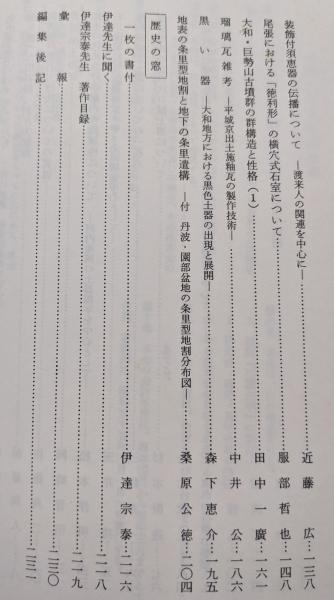 装飾付須恵器の伝播について ―渡来人の関連を中心に―…近藤 広…一三八
尾張における「徳利形」の横穴式石室について…服部哲也…一四八
大和・巨勢山古墳群の群構造と性格（1）…田中一廣…一六一
瑠璃瓦雑考 ―平城京出土施釉瓦の製作技術―…中井 公…一八六
黒い器 ―大和地方における黒色土器の出現と展開―…森下恵介…一九五
地表の条里型地割と地下の条里遺構 ―付 丹波・園部盆地の条里型地割分布図―…桑原公徳…二〇四
歴史の窓
一枚の書付…伊達宗泰…二一六
伊達先生に聞く…二一八
伊達宗泰先生 著作目録…二一九
彙報…二三〇
編集後記…二三一